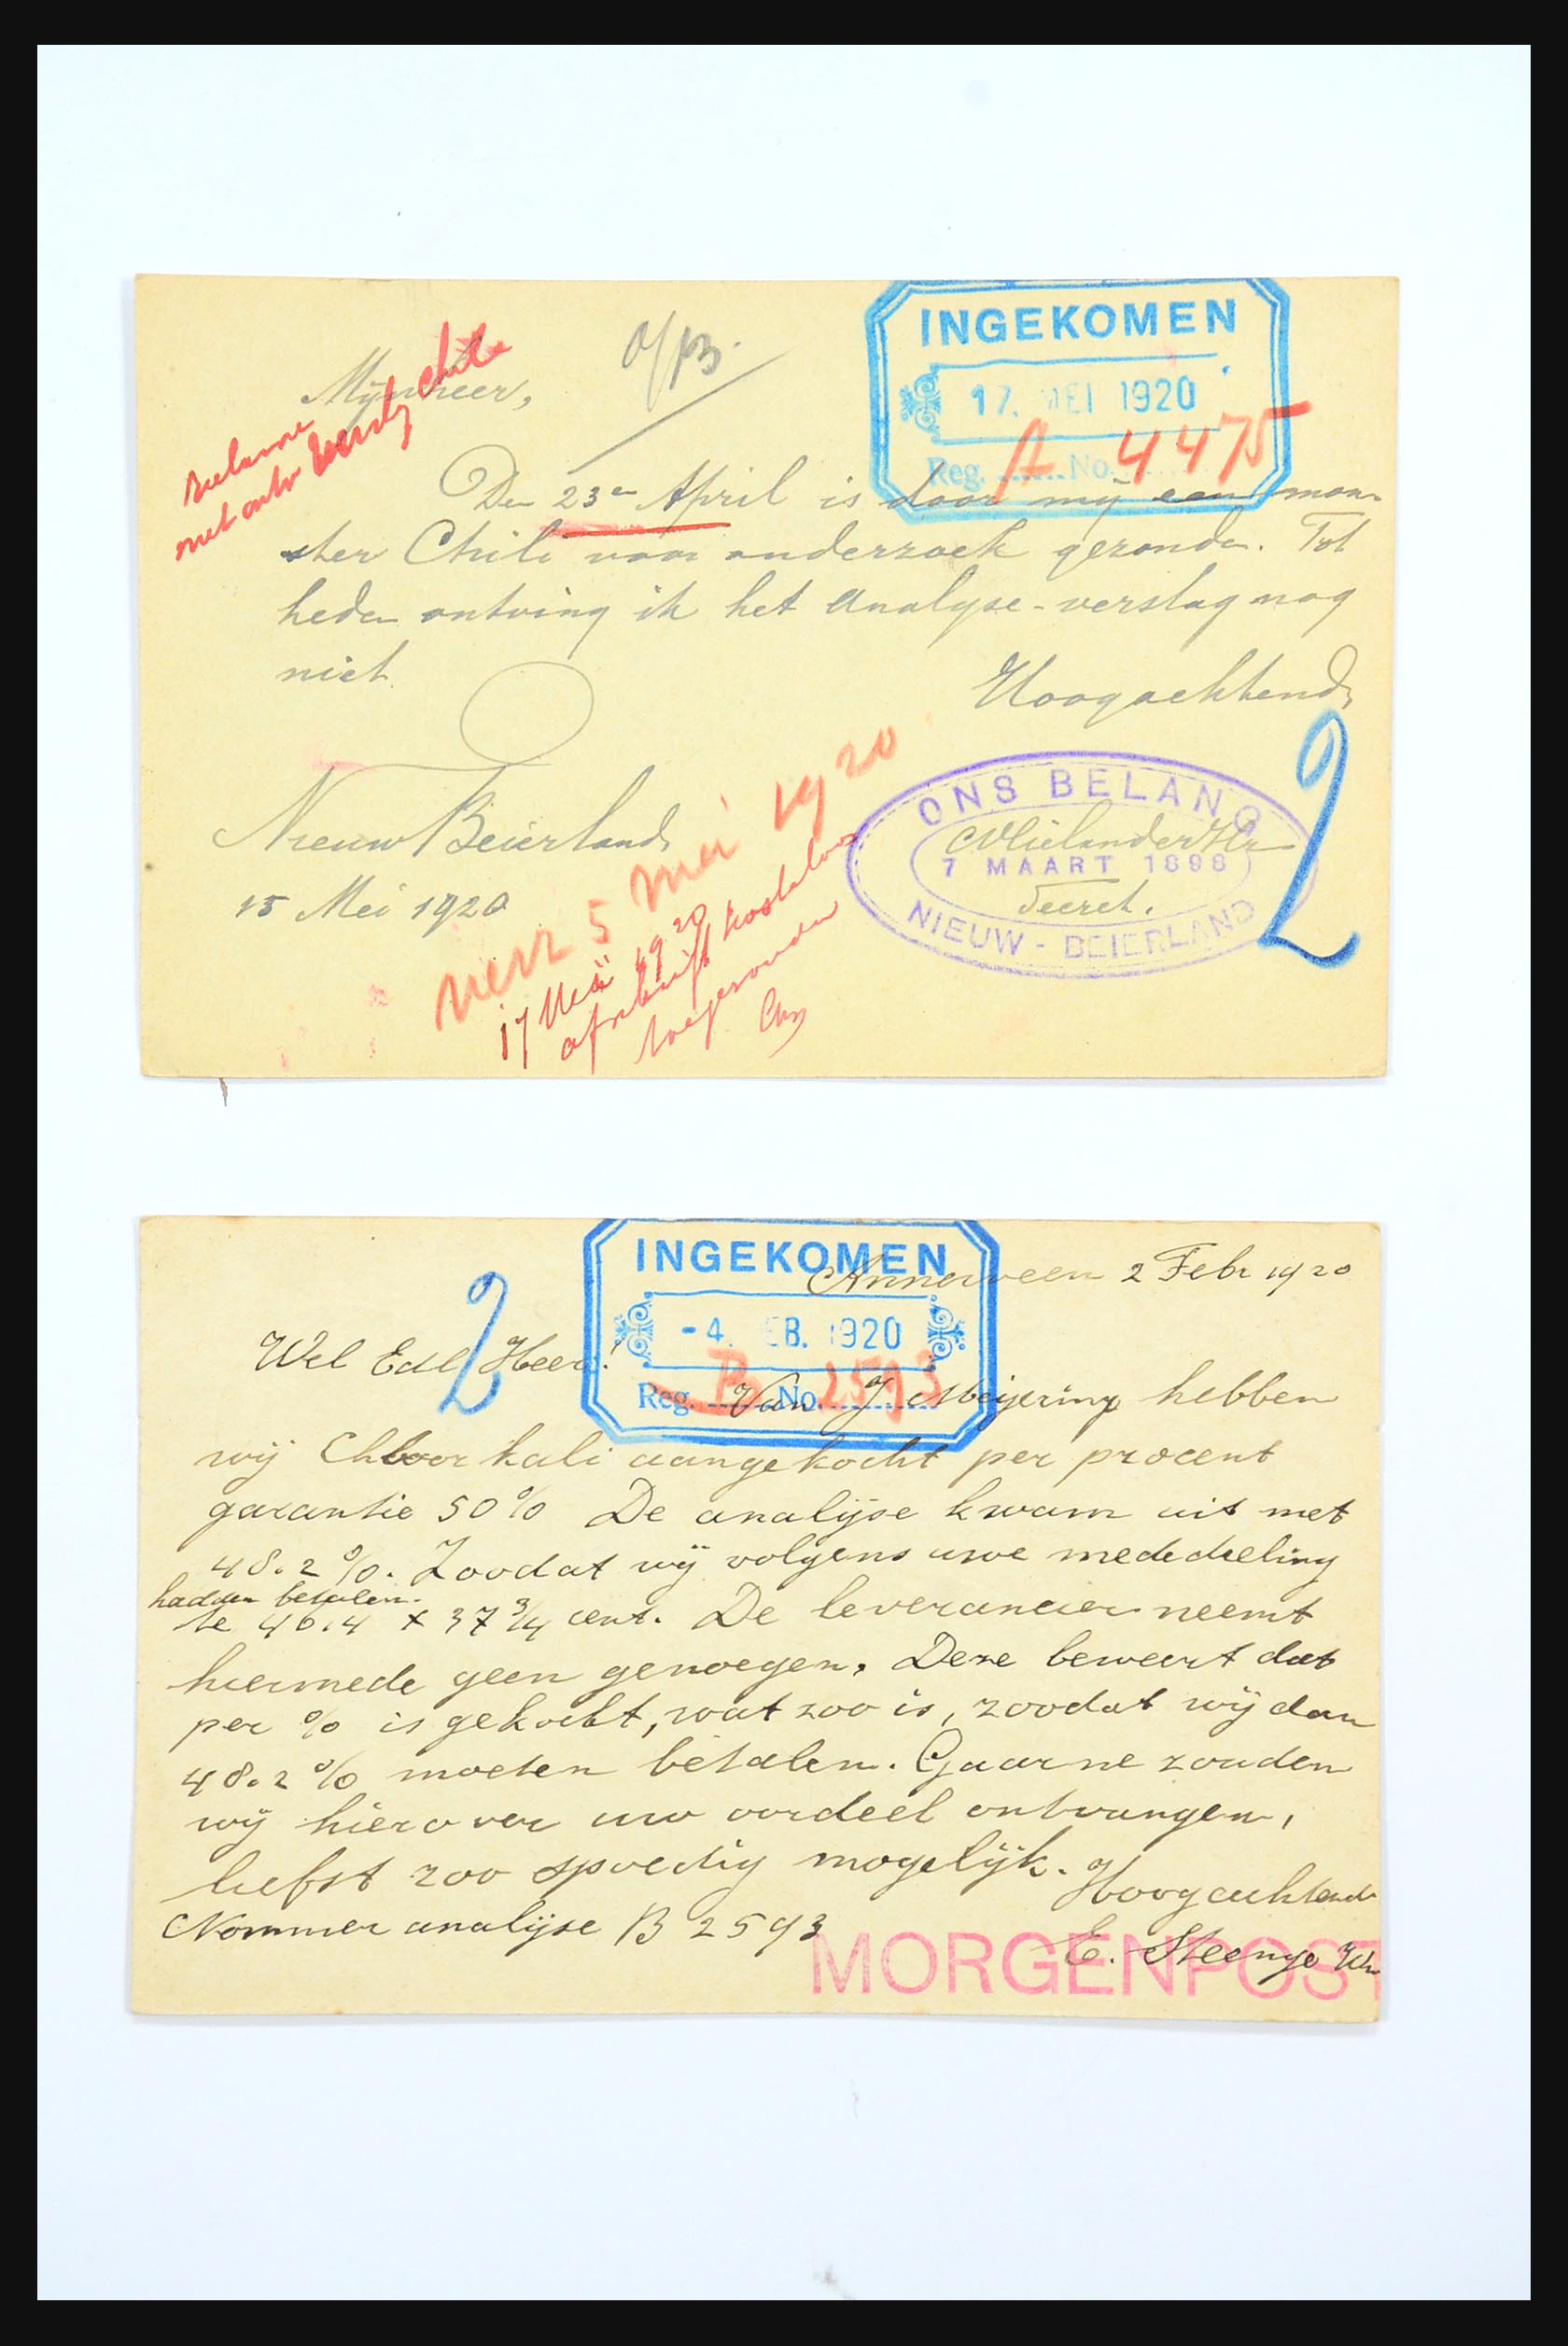 INGEKOMEN
17. MEI 1920
Reg. A No. 4475
a/B.
Mijnheer,
Den 23en April is door mij een mon-
ster Chili voor onderzoek gezonden. Tot
heden ontving ik het Analyse-verslag nog
niet.
Hoogachtend,
Nieuw Beierland,
15 Mei 1920
ONS BELANG
7 MAART 1898
NIEUW-BEIERLAND
CVlielander Hz
Secret.
2
verz 5 Mei 1920
17 Mei 1920
afschrift kosteloos
toegezonden
INGEKOMEN
-4. EB. 1920
Reg. B No. 2593
2
Annerveen 2 Febr 1920
Wel Edl Heer!
Van J Meijering hebben
wij Chloorkali aangekocht per procent
garantie 50% De analijse kwam uit met
48.2%. Zoodat wij volgens uwe mededeeling
hadden betalen.
te 46.4 x 37 3/4 cent. De leverancier neemt
hiermede geen genoegen. Deze beweert dat
per % is gekocht, wat zoo is, zoodat wij dan
48.2% moeten betalen. Gaarne zouden
wij hierover uw oordeel ontvangen,
liefst zoo spoedig mogelijk.
Hoogachtend
Nommer analijse B 2593
E. Steenge Wn
MORGENPOST